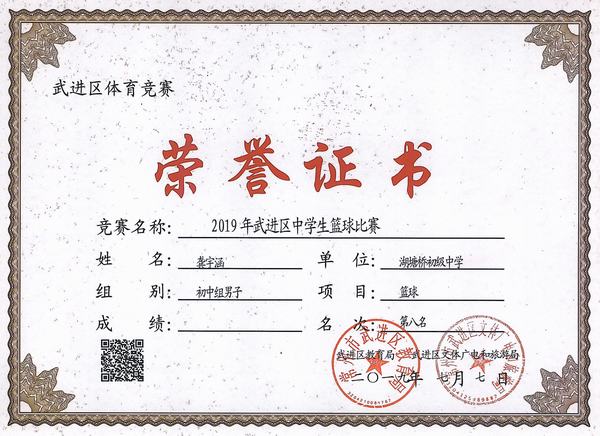 武进区体育竞赛
荣誉证书
竞赛名称: 2019年武进区中学生篮球比赛
姓 名: 龚宇涵 单 位: 湖塘桥初级中学
组 别: 初中组男子 项 目: 篮球
成 绩: 名 次: 第八名
武进区教育局 武进区文体广电和旅游局
二〇一九年 七月七日
常州市武进区教育局